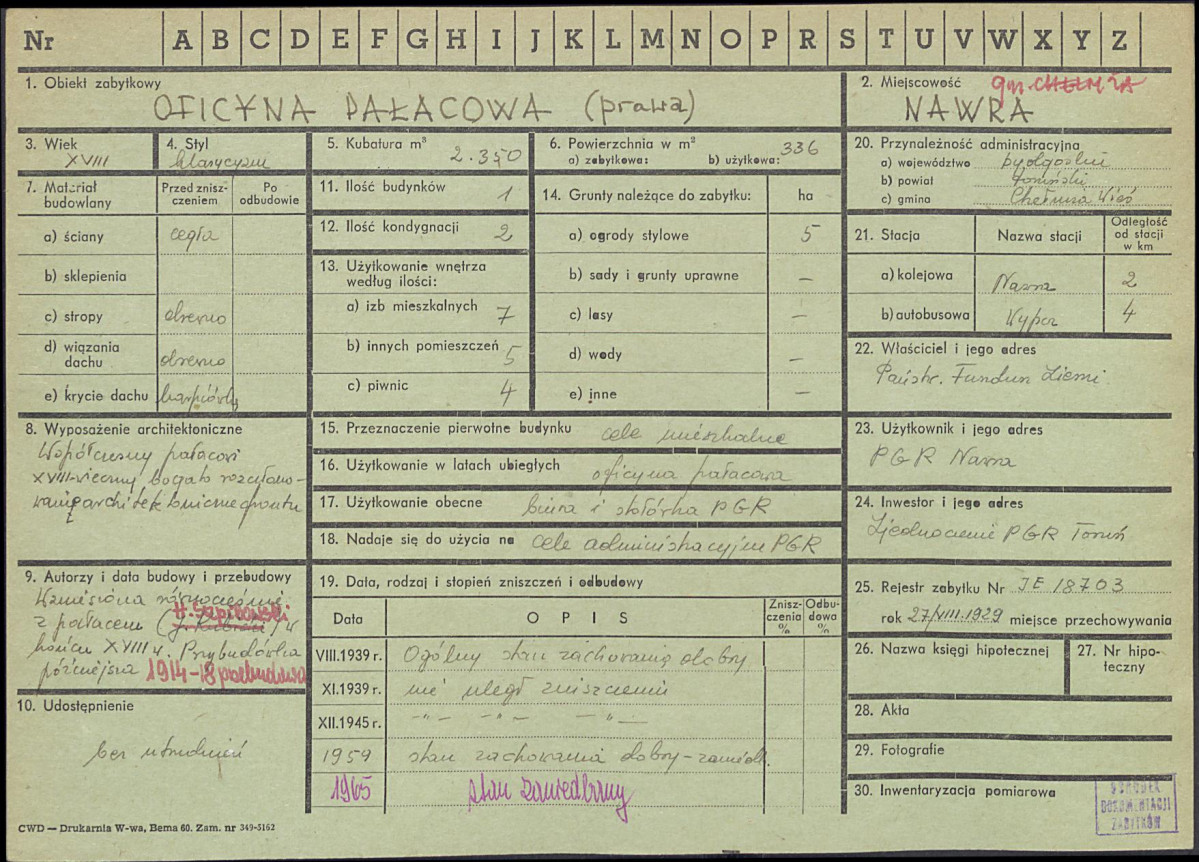 Nr A B C D E F G H I J K L M N O P R S T U V W X Y Z
1. Obiekt zabytkowy
OFICYNA PAŁACOWA (prawa)
2. Miejscowość
gm. CHEŁMŻA
NAWRA
3. Wiek
XVIII
4. Styl
klasycyzm
5. Kubatura m³
2.350
6. Powierzchnia w m²
a) zabytkowa: b) użytkowa: 336
20. Przynależność administracyjna
a) województwo bydgoskie
b) powiat toruński
c) gmina Chełmża Wieś
7. Materiał budowlany
Przed zniszczeniem
Po odbudowie
a) ściany cegła
b) sklepienia
c) stropy drewno
d) wiązania dachu drewno
e) krycie dachu karpiówka
11. Ilość budynków 1
12. Ilość kondygnacji 2
13. Użytkowanie wnętrza według ilości:
a) izb mieszkalnych 7
b) innych pomieszczeń 5
c) piwnic 4
14. Grunty należące do zabytku: ha
a) ogrody stylowe 5
b) sady i grunty uprawne –
c) lasy –
d) wody –
e) inne –
21. Stacja
Nazwa stacji
Odległość od stacji w km
a) kolejowa Nawra 2
b) autobusowa 4
22. Właściciel i jego adres
Państw. Fundusz Ziemi
8. Wyposażenie architektoniczne
Współczesny pałacowi
XVIII-wieczny bogato rozczłono-
wanie architektoniczne frontu
15. Przeznaczenie pierwotne budynku cele mieszkalne
16. Użytkowanie w latach ubiegłych oficyna pałacowa
17. Użytkowanie obecne biura i stołówka PGR
18. Nadaje się do użycia na cele administracyjne PGR
23. Użytkownik i jego adres
PGR Nawra
24. Inwestor i jego adres
Zjednoczenie PGR Toruń
9. Autorzy i data budowy i przebudowy
Wzniesiona równocześnie
H. Szpilowski
z pałacem w
końcu XVIII w. Przybudówka
późniejsza 1914-18 przebudowa
19. Data, rodzaj i stopień zniszczeń i odbudowy
Data
OPIS
Zniszczenia %
Odbudowa %
VIII.1939 r. Ogólny stan zachowania dobry
XI.1939 r. nie uległ zniszczeniu
XII.1945 r. –"– –"– –"–
1959 stan zachowania dobry – zaniedb.
1965 stan zaniedbany
25. Rejestr zabytku Nr JE 18703
rok 27/VIII.1929 miejsce przechowywania
26. Nazwa księgi hipotecznej
27. Nr hipoteczny
10. Udostępnienie
bez utrudnień
28. Akta
29. Fotografie
30. Inwentaryzacja pomiarowa
OŚRODEK
DOKUMENTACJI
ZABYTKÓW
CWD — Drukarnia W-wa, Bema 60. Zam. nr 349-5162